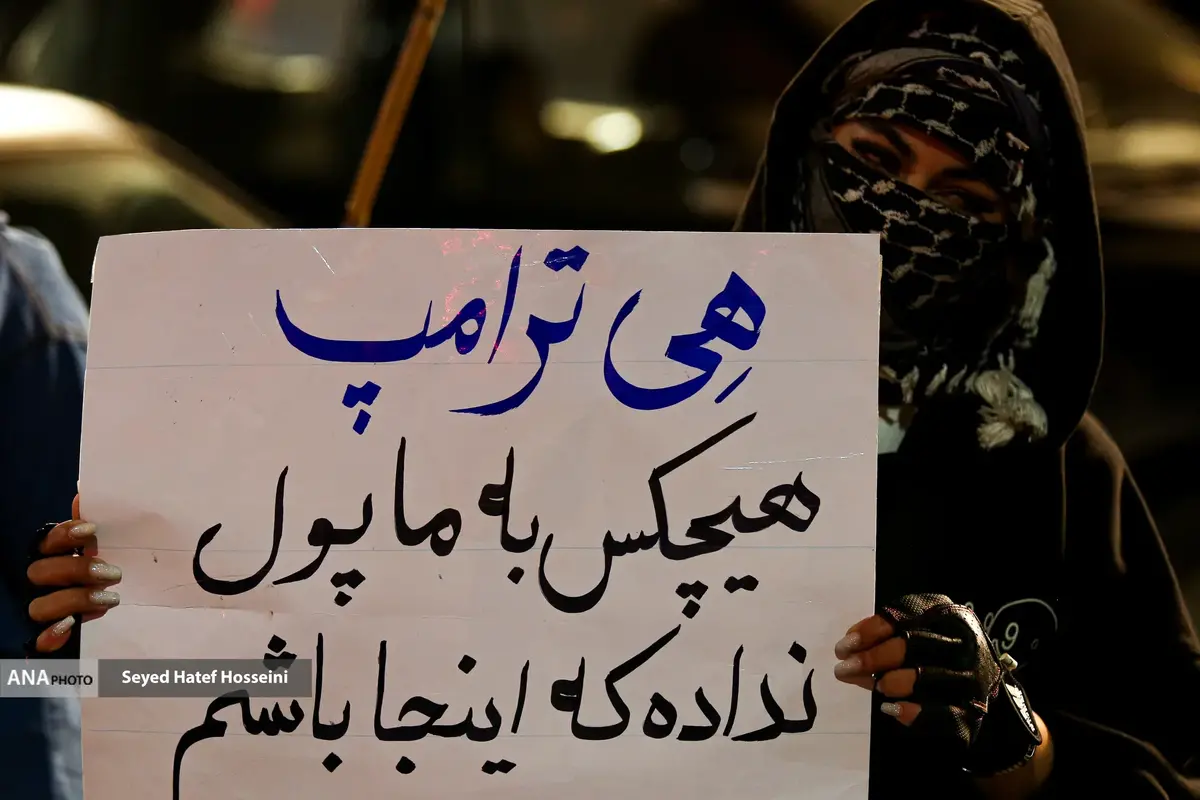 هِی ترامپ
هیچکس به ما پول
نداده که اینجا باشم
ANA PHOTO
Seyed Hatef Hosseini